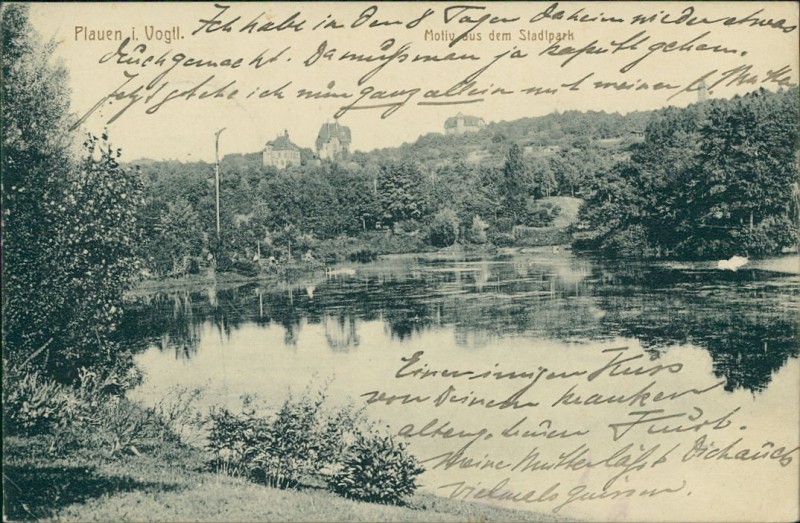 Plauen i. Vogtl.
Motiv aus dem Stadtpark
Ich habe in den 8 Tagen daheim wieder etwas
durchgemacht. Da muß man ja kaputt gehen.
Jetzt gehe ich nun ganz allein mit meiner l. Mutter
Einen innigen Kuss
von Deinem kranken
alten, treuen
Meine Mutter läßt Dich auch
vielmals grüssen.